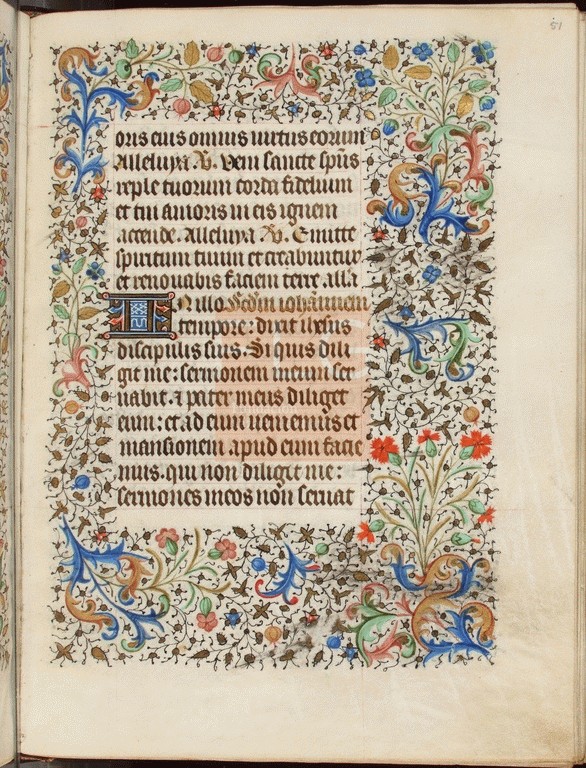 51
oris eius omnis virtus eorum
Alleluya V. Veni sancte sp̄us
reple tuorum corda fidelium
et tui amoris in eis ignem
accende. Alleluya V. Emitte
spiritum tuum et creabuntur
et renovabis faciem terre. all'a
In illo Scd'm iohannem
tempore: dixit ihesus
discipulis suis. Si quis dili
git me: sermonem meum ser
vabit. et pater meus diliget
eum: et ad eum veniemus et
mansionem apud eum facie
mus. qui non diligit me:
sermones meos non servat